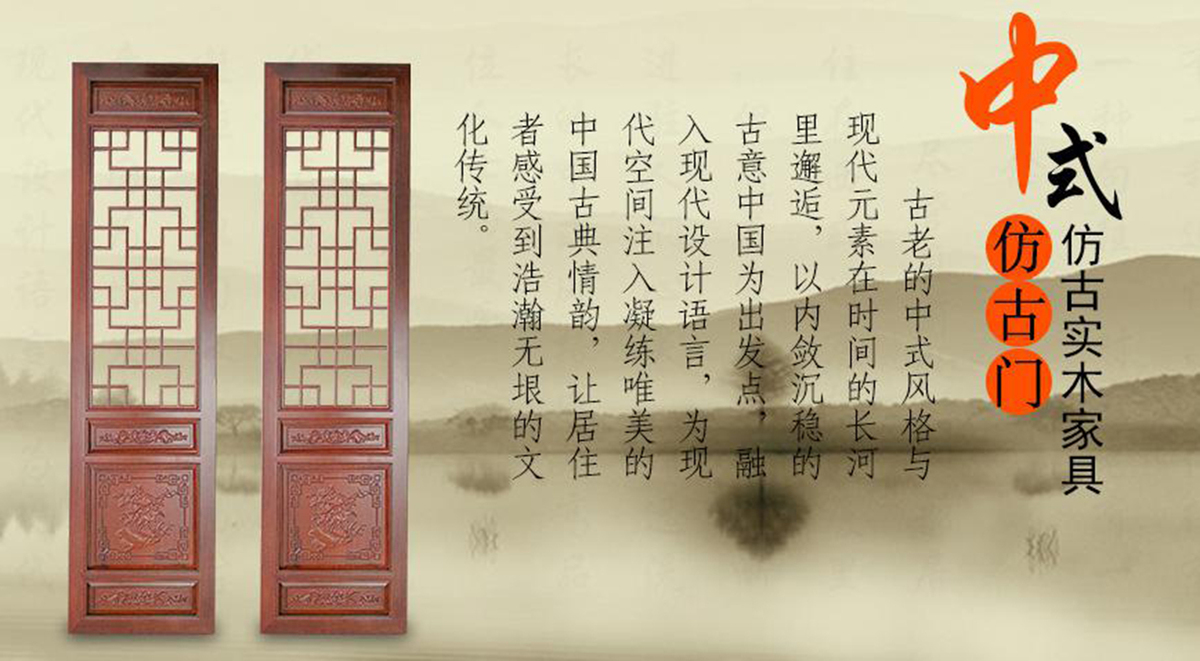 中式
仿古实木家具
仿古门
古老的中式风格与
现代元素在时间的长河
里邂逅，以内敛沉稳的
古意中国为出发点，融
入现代设计语言，为现
代空间注入凝练唯美的
中国古典情韵，让居住
者感受到浩瀚无垠的文
化传统。